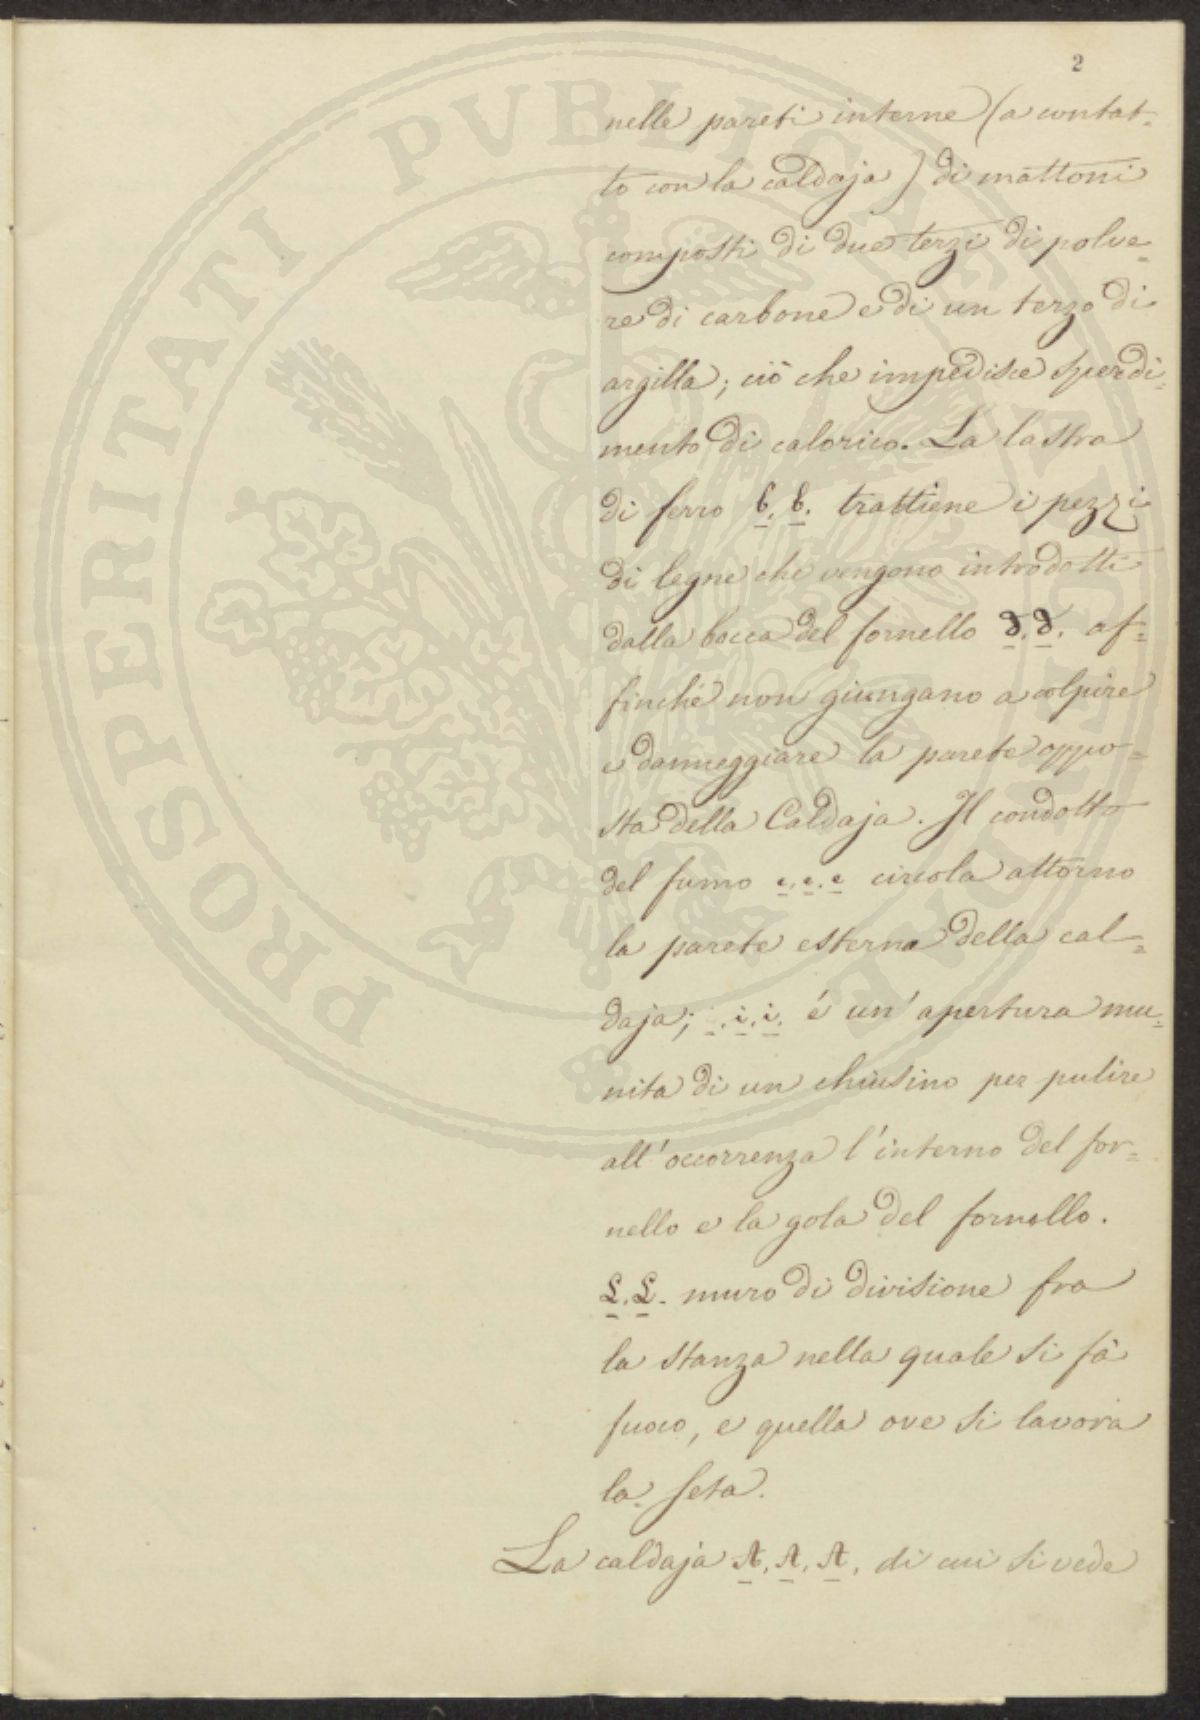 2
nelle pareti interne (a contat-
to con la caldaja) di mattoni
composti di due terzi di polve=
re di carbone e di un terzo di
argilla; ciò che impedisce sperdi=
mento di calorico. La lastra
di ferro b. b. trattiene i pezzi
di legne che vengono introdotti
dalla bocca del fornello d. d. af=
finché non giungano a colpire
e danneggiare la parete oppo=
sta della Caldaja. Il condotto
del fumo e. e. e circola attorno
la parete esterna della cal=
daja; i. i. i. é un' apertura mu=
nita di un chiusino per pulire
all' occorrenza l'interno del for=
nello e la gola del fornello.
L. L. muro di divisione fra
la stanza nella quale si fà
fuoco, e quella ove si lavora
la seta.
La caldaja A. A. A. di cui si vede
PROSPERITATI PVBLICAE